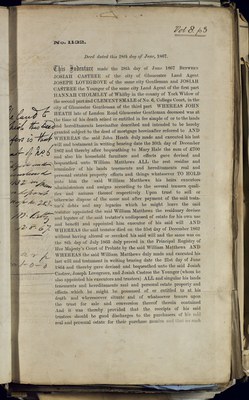 Vol 8. p3
No. 1135.
Deed dated this 28th day of June, 1867.
This Indenture made the 28th day of June 1867 BETWEEN
JOSIAH CASTREE of the city of Gloucester Land Agent
JOSEPH LOVEGROVE of the same city Gentleman and JOSIAH
CASTREE the Younger of the same city Land Agent of the first part
HANNAH CHOLMLEY of Whitby in the county of York Widow of
the second part and CLEMENT of No. 6, College Court, in the
city of Gloucester Gentleman of the third part WHEREAS JOHN
HEATH late of London Road Gloucester Gentleman deceased was at
the time of his death seized or entitled in fee simple of or to the lands
and hereditaments hereinafter described and intended to be hereby
granted subject to the deed of mortgage hereinafter referred to AND
WHEREAS the said John Heath duly made and executed his last
will and testament in writing bearing date the 30th day of December
1863 and thereby after bequeathing to Mary Hale the sum of £700
and also his household furniture and effects gave devised and
bequeathed unto William Matthews ALL the rest residue and
remainder of his lands tenements and hereditaments real and
personal estate property effects and things whatsoever TO HOLD
unto him the said William Matthews his heirs executors
administrators and assigns according to the several tenures quali-
ties and natures thereof respectively Upon trust to sell or
otherwise dispose of the same and after payment of the said testa-
tor's debts and any legacies which he might leave the said
testator appointed the said William Matthews the residuary devisee
and legatee of the said testator's estate of and for his own use
and benefit and appointed him executor of his said will AND
WHEREAS the said testator died on the 31st day of December 1863
without having altered or revoked his said will and the same was on
the day of July 1865 duly proved in the Principal Registry of
Her Majesty's Court of Probate by the said William Matthews AND
WHEREAS the said William Matthews duly made and executed his
last will and testament in writing bearing date the 21st day of June
1864 and thereby gave devised and bequeathed unto the said Josiah
Castree, Joseph Lovegrove, and Josiah Castree the Younger (whom he
also appointed his executors and trustees) ALL and singular his lands
tenements and hereditaments and real and personal estate property and
effects which he might be possessed of or entitled to at his
death and wheresoever situate and of whatsoever tenure upon
the trust for sale and conversion thereof therein contained
And it was thereby provided that the receipts of his said
trustees should be good discharges to the purchasers of his
real and personal estate for their purchase monies and that no such